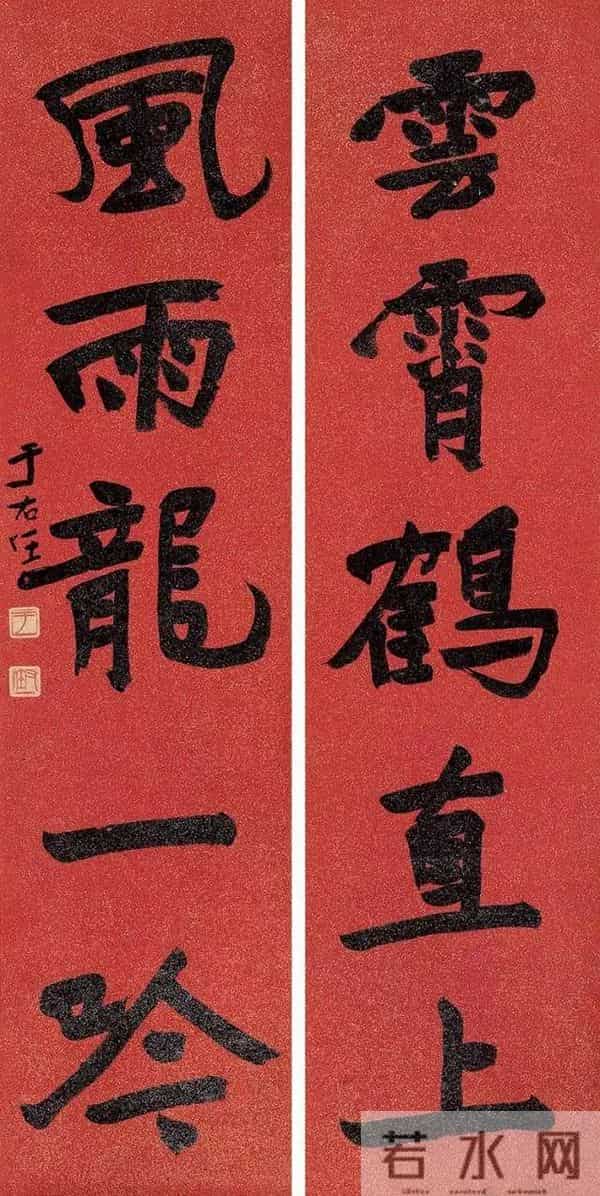 雲霄鶴直上
風雨龍一吟
于右任
若水网